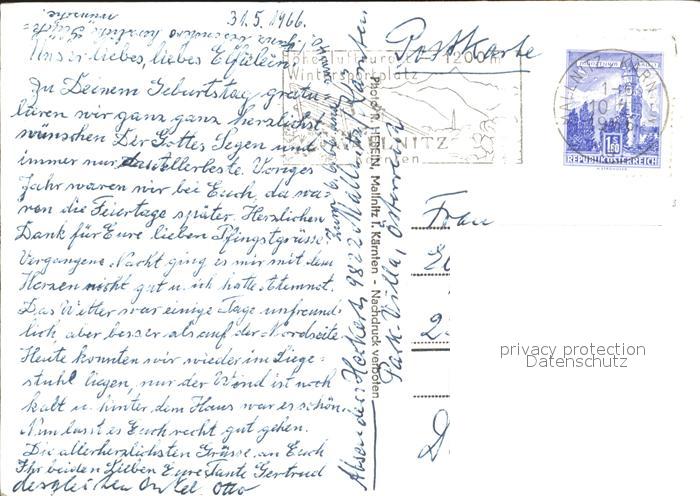 31.5.1966.
Unser liebes, liebes Elfulein!
Zu Deinem Geburtstag gratu=
lieren wir ganz ganz herzlichst
wünschen Dir Gottes Segen und
immer nur das allerbeste. Voriges
Jahr waren wir bei Euch, da wa=
ren die Feiertage später. Herzlichen
Dank für Eure lieben Pfingstgrüsse.
Vergangene Nacht ging es mir mit dem
Herzen nicht gut u. ich hatte Atemnot.
Das Wetter war einige Tage unfreund=
lich, aber besser als auf der Nordseite
Heute konnten wir wieder im Liege=
stuhl liegen, nur der Wind ist noch
kalt u. hinter dem Haus war es schön.
Nun lasst es Euch recht gut gehen.
Die allerherzlichsten Grüsse an Euch
Ihr beiden Lieben Eure Tante Gertrud
desgleichen Onkel Otto
Absender: Heckert, 9822 Mallnitz, Kärnten
Park-Villa, Österreich
Photo: R. HEREIN, Mallnitz i. Kärnten - Nachdruck verboten
Postkarte
1200m
Wintersportplatz
MALLNITZ
Kärnten
MALLNITZ, KÄRNTEN
REPUBLIK ÖSTERREICH
1.80
Frau
privacy protection
Datenschutz